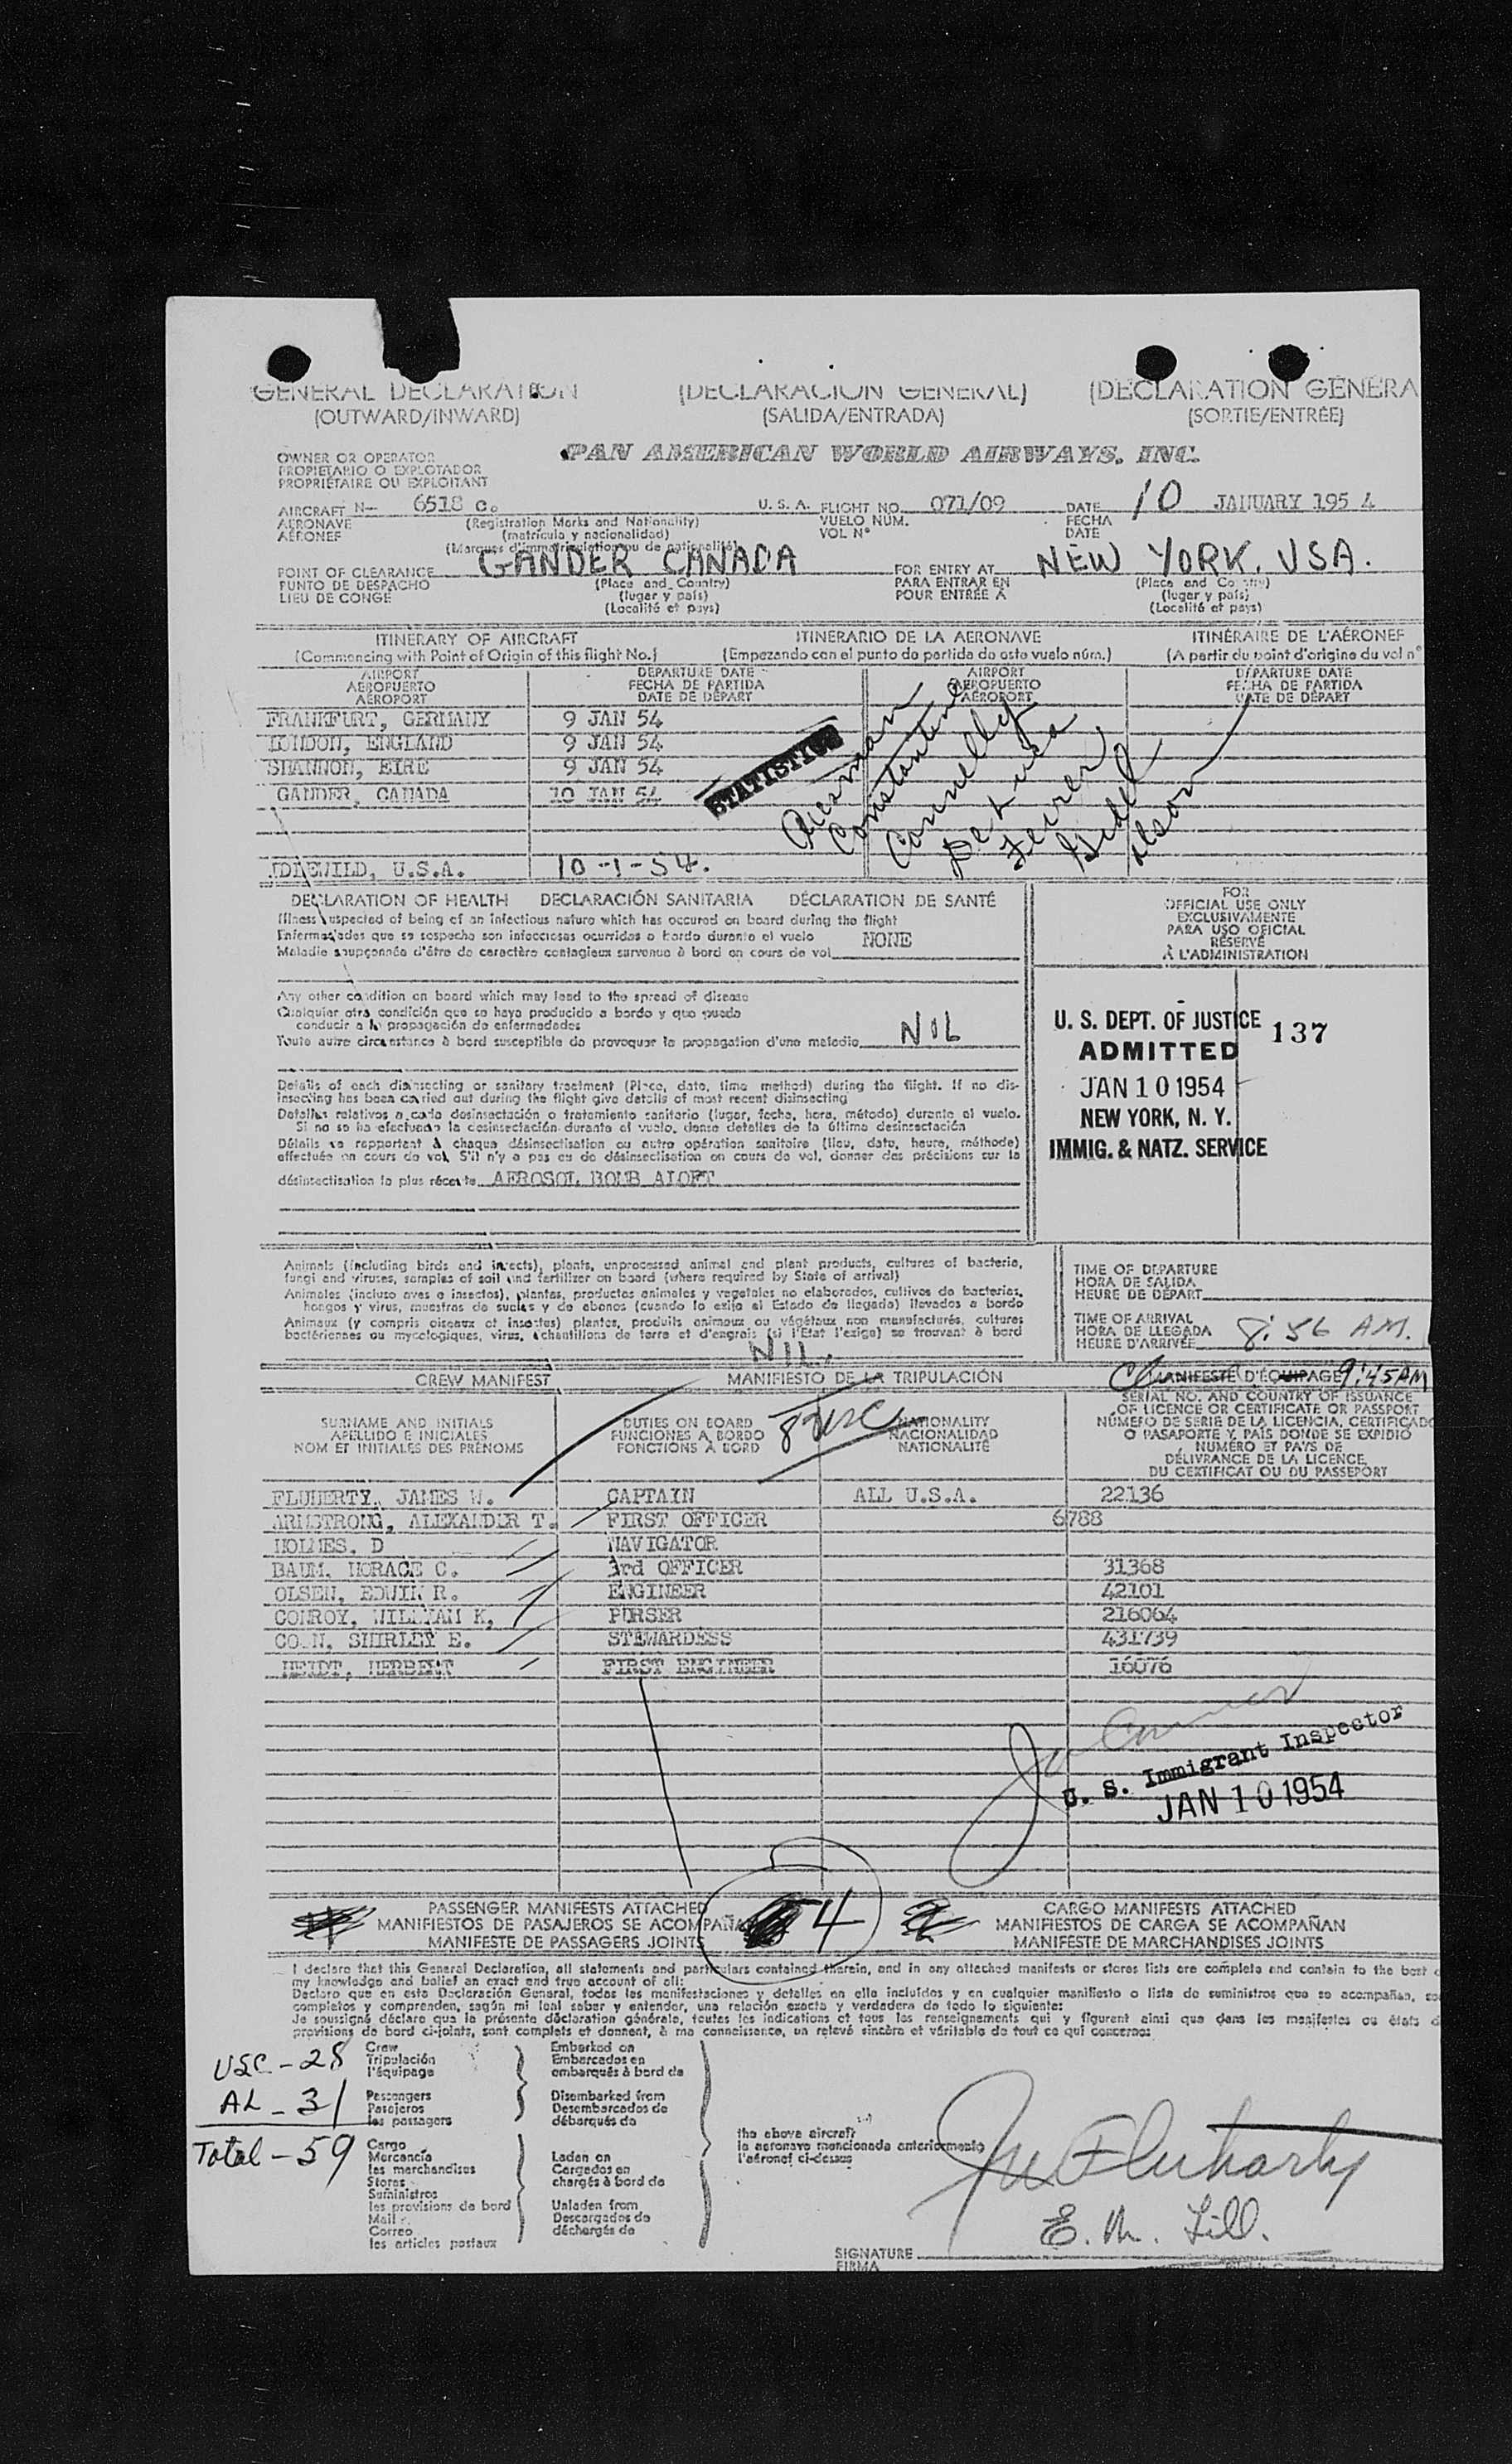 GENERAL DECLARATION (DECLARACION GENERAL) (DÉCLARATION GÉNÉRA
(OUTWARD/INWARD) (SALIDA/ENTRADA) (SORTIE/ENTRÉE)
OWNER OR OPERATOR
PROPIETARIO O EXPLOTADOR
PROPRIÉTAIRE OU EXPLOITANT
PAN AMERICAN WORLD AIRWAYS, INC.
AIRCRAFT N- 6518 C. U. S. A. FLIGHT NO. 071/09 DATE 10 JANUARY 1954
AERONAVE (Registration Marks and Nationality) VUELO NUM. FECHA
AÉRONEF (matrícula y nacionalidad) VOL Nº DATE
(Marques d'immatriculation ou de nationalité)
POINT OF CLEARANCE GANDER CANADA FOR ENTRY AT NEW YORK. USA.
PUNTO DE DESPACHO (Place and Country) PARA ENTRAR EN (Place and Country)
LIEU DE CONGÉ (lugar y país) POUR ENTRÉE À (lugar y país)
(Localité et pays) (Localité et pays)
ITINERARY OF AIRCRAFT ITINERARIO DE LA AERONAVE ITINÉRAIRE DE L'AÉRONEF
(Commencing with Point of Origin of this flight No.) (Empezando con el punto de partida de este vuelo núm.) (A partir du point d'origine du vol nº
AIRPORT DEPARTURE DATE AIRPORT DEPARTURE DATE
AEROPUERTO FECHA DE PARTIDA AEROPUERTO FECHA DE PARTIDA
AÉROPORT DATE DE DÉPART AÉROPORT DATE DE DÉPART
FRANKFURT, GERMANY 9 JAN 54
LONDON, ENGLAND 9 JAN 54
SHANNON, EIRE 9 JAN 54
GANDER, CANADA 10 JAN 54
STATISTICS
Constantine
Connelly
Ferrer
IDLEWILD, U.S.A. 10-1-54.
DECLARATION OF HEALTH DECLARACIÓN SANITARIA DÉCLARATION DE SANTÉ
Illness suspected of being of an infectious nature which has occured on board during the flight
Enfermedades que se sospecha son infecciosas ocurridas a bordo durante el vuelo NONE
Maladie soupçonnée d'être de caractère contagieux survenue à bord en cours de vol
FOR
OFFICIAL USE ONLY
EXCLUSIVAMENTE
PARA USO OFICIAL
RÉSERVÉ
À L'ADMINISTRATION
Any other condition on board which may lead to the spread of disease
Cualquier otra condición que se haya producido a bordo y que pueda
conducir a la propagación de enfermedades
Toute autre circonstance à bord susceptible de provoquer la propagation d'une maladie NIL
U. S. DEPT. OF JUSTICE 137
ADMITTED
JAN 10 1954
NEW YORK, N. Y.
IMMIG. & NATZ. SERVICE
Details of each disinsecting or sanitary treatment (Place, date, time method) during the flight. If no dis-
insecting has been carried out during the flight give details of most recent disinsecting
Detalles relativos a cada desinsectación o tratamiento sanitario (lugar, fecha, hora, método) durante el vuelo.
Si no se ha efectuado la desinsectación durante el vuelo, dense detalles de la última desinsectación
Détails se rapportant à chaque désinsectisation ou autre opération sanitaire (lieu, date, heure, méthode)
effectuée en cours de vol. S'il n'y a pas eu de désinsectisation en cours de vol, donner des précisions sur la
désinsectisation la plus récente AEROSOL BOMB ALOFT
Animals (including birds and insects), plants, unprocessed animal and plant products, cultures of bacteria,
fungi and viruses, samples of soil and fertilizer on board (where required by State of arrival)
Animales (incluso aves e insectos), plantas, productos animales y vegetales no elaborados, cultivos de bacterias,
hongos y virus, muestras de suelas y de abonos (cuando lo exija el Estado de llegada) llevados a bordo
Animaux (y compris oiseaux et insectes) plantes, produits animaux ou végétaux non manufacturés, cultures
bactériennes ou mycologiques, virus, échantillons de terre et d'engrais (si l'Etat l'exige) se trouvant à bord
NIL.
TIME OF DEPARTURE
HORA DE SALIDA
HEURE DE DÉPART
TIME OF ARRIVAL
HORA DE LLEGADA 8:56 AM.
HEURE D'ARRIVÉE
CREW MANIFEST MANIFIESTO DE LA TRIPULACIÓN MANIFESTE D'ÉQUIPAGE 9:45AM
SURNAME AND INITIALS DUTIES ON BOARD NATIONALITY
APELLIDO E INICIALES FUNCIONES A BORDO NACIONALIDAD
NOM ET INITIALES DES PRÉNOMS FONCTIONS À BORD NATIONALITÉ
8 USC
SERIAL NO. AND COUNTRY OF ISSUANCE
OF LICENCE OR CERTIFICATE OR PASSPORT
NÚMERO DE SERIE DE LA LICENCIA, CERTIFICADO
O PASAPORTE Y PAÍS DONDE SE EXPIDIO
NUMÉRO ET PAYS DE
DÉLIVRANCE DE LA LICENCE
DU CERTIFICAT OU DU PASSEPORT
FLUHERTY, JAMES W. CAPTAIN ALL U.S.A. 22136
ARMSTRONG, ALEXANDER T. FIRST OFFICER 6788
HOLMES, D NAVIGATOR
BAUM, HORACE C. 3rd OFFICER 31368
OLSEN, EDWIN R. ENGINEER 42101
CONROY, WILLIAM K, PURSER 216064
SHIRLEY E. STEWARDESS 431739
HEIDT, HERBERT FIRST ENGINEER 16076
U. S. Immigrant Inspector
JAN 10 1954
PASSENGER MANIFESTS ATTACHED CARGO MANIFESTS ATTACHED
MANIFIESTOS DE PASAJEROS SE ACOMPAÑA 4 MANIFIESTOS DE CARGA SE ACOMPAÑAN
MANIFESTE DE PASSAGERS JOINTS MANIFESTE DE MARCHANDISES JOINTS
I declare that this General Declaration, all statements and particulars contained therein, and in any attached manifests or stores lists are complete and contain to the best
my knowledge and belief an exact and true account of all:
Declaro que en esta Declaración General, todas las manifestaciones y detalles en ella incluidos y en cualquier manifiesto o lista de suministros que se acompañan,
completos y comprenden, según mi leal saber y entender, una relación exacta y verdadera de todo lo siguiente:
Je soussigné déclare que la présente déclaration générale, toutes les indications et tous les renseignements qui y figurent ainsi que dans les manifestes ou états
provisions de bord ci-joints, sont complets et donnent, à ma connaissance, un relevé sincère et véritable de tout ce qui concerne:
USC - 28
AL - 31
Total - 59
Crew Embarked on
Tripulación Embarcados en
l'équipage embarqués à bord de
Passengers Disembarked from
Pasajeros Desembarcados de
les passagers débarqués de
Cargo
Mercancía Laden on
les marchandises Cargados en
Stores chargés à bord de
Suministros
les provisions de bord Unladen from
Mail Descargados de
Correo déchargés de
les articles postaux
the above aircraft
la aeronave mencionada anteriormente
l'aéronef ci-dessus
E. M. Lill.
SIGNATURE
FIRMA